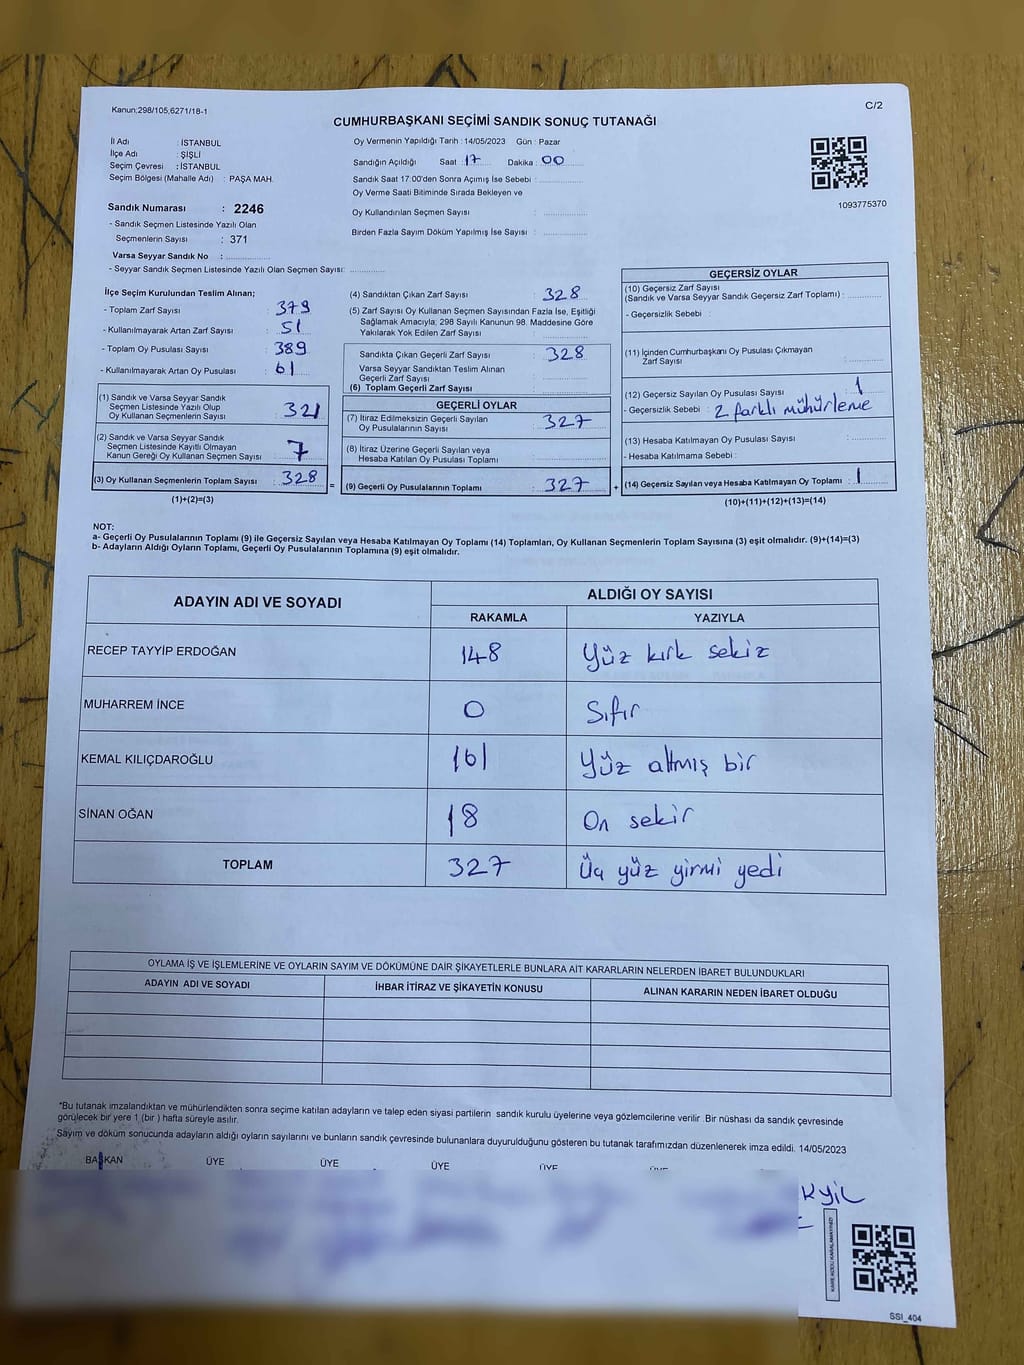 Kanun;298/105,6271/18-1
C/2
CUMHURBAŞKANI SEÇİMİ SANDIK SONUÇ TUTANAĞI
İl Adı : İSTANBUL
İlçe Adı : ŞİŞLİ
Seçim Çevresi : İSTANBUL
Seçim Bölgesi (Mahalle Adı) : PAŞA MAH.
Oy Vermenin Yapıldığı Tarih : 14/05/2023 Gün : Pazar
Sandığın Açıldığı Saat : 17 Dakika : 00
Sandık Saat 17:00'den Sonra Açımış İse Sebebi :
Oy Verme Saati Bitiminde Sırada Bekleyen ve
Oy Kullandırılan Seçmen Sayısı :
Birden Fazla Sayım Döküm Yapılmış İse Sayısı :
1093775370
Sandık Numarası : 2246
- Sandık Seçmen Listesinde Yazılı Olan
Seçmenlerin Sayısı : 371
Varsa Seyyar Sandık No :
- Seyyar Sandık Seçmen Listesinde Yazılı Olan Seçmen Sayısı:
İlçe Seçim Kurulundan Teslim Alınan;
- Toplam Zarf Sayısı : 379
- Kullanılmayarak Artan Zarf Sayısı : 51
- Toplam Oy Pusulası Sayısı : 389
- Kullanılmayarak Artan Oy Pusulası : 61
(1) Sandık ve Varsa Seyyar Sandık
Seçmen Listesinde Yazılı Olup
Oy Kullanan Seçmenlerin Sayısı : 321
(2) Sandık ve Varsa Seyyar Sandık
Seçmen Listesinde Kayıtlı Olmayan
Kanun Gereği Oy Kullanan Seçmen Sayısı : 7
(3) Oy Kullanan Seçmenlerin Toplam Sayısı : 328 =
(1)+(2)=(3)
(4) Sandıktan Çıkan Zarf Sayısı : 328
(5) Zarf Sayısı Oy Kullanan Seçmen Sayısından Fazla İse, Eşitliği
Sağlamak Amacıyla, 298 Sayılı Kanunun 98. Maddesine Göre
Yakılarak Yok Edilen Zarf Sayısı :
Sandıkta Çıkan Geçerli Zarf Sayısı : 328
Varsa Seyyar Sandıktan Teslim Alınan
Geçerli Zarf Sayısı :
(6) Toplam Geçerli Zarf Sayısı :
GEÇERLİ OYLAR
(7) İtiraz Edilmeksizin Geçerli Sayılan
Oy Pusulalarının Sayısı : 327
(8) İtiraz Üzerine Geçerli Sayılan veya
Hesaba Katılan Oy Pusulası Toplamı :
(9) Geçerli Oy Pusulalarının Toplamı : 327 +
GEÇERSİZ OYLAR
(10) Geçersiz Zarf Sayısı
(Sandık ve Varsa Seyyar Sandık Geçersiz Zarf Toplamı) :
- Geçersizlik Sebebi :
(11) İçinden Cumhurbaşkanı Oy Pusulası Çıkmayan
Zarf Sayısı :
(12) Geçersiz Sayılan Oy Pusulası Sayısı : 1
- Geçersizlik Sebebi : 2 farklı mühürleme
(13) Hesaba Katılmayan Oy Pusulası Sayısı :
- Hesaba Katılmama Sebebi :
(14) Geçersiz Sayılan veya Hesaba Katılmayan Oy Toplamı : 1
(10)+(11)+(12)+(13)=(14)
NOT:
a- Geçerli Oy Pusulalarının Toplamı (9) ile Geçersiz Sayılan veya Hesaba Katılmayan Oy Toplamı (14) Toplamları, Oy Kullanan Seçmenlerin Toplam Sayısına (3) eşit olmalıdır. (9)+(14)=(3)
b- Adayların Aldığı Oyların Toplamı, Geçerli Oy Pusulalarının Toplamına (9) eşit olmalıdır.
ADAYIN ADI VE SOYADI
ALDIĞI OY SAYISI
RAKAMLA YAZIYLA
RECEP TAYYİP ERDOĞAN 148 Yüz kırk sekiz
MUHARREM İNCE 0 Sıfır
KEMAL KILIÇDAROĞLU 161 Yüz altmış bir
SİNAN OĞAN 18 On sekiz
TOPLAM 327 Üç yüz yirmi yedi
OYLAMA İŞ VE İŞLEMLERİNE VE OYLARIN SAYIM VE DÖKÜMÜNE DAİR ŞİKAYETLERLE BUNLARA AİT KARARLARIN NELERDEN İBARET BULUNDUKLARI
ADAYIN ADI VE SOYADI İHBAR İTİRAZ VE ŞİKAYETİN KONUSU ALINAN KARARIN NEDEN İBARET OLDUĞU
*Bu tutanak imzalandıktan ve mühürlendikten sonra seçime katılan adayların ve talep eden siyasi partilerin sandık kurulu üyelerine veya gözlemcilerine verilir. Bir nüshası da sandık çevresinde
görülecek bir yere 1 (bir ) hafta süreyle asılır.
Sayım ve döküm sonucunda adayların aldığı oyların sayılarını ve bunların sandık çevresinde bulunanlara duyurulduğunu gösteren bu tutanak tarafımızdan düzenlenerek imza edildi. 14/05/2023
BAŞKAN ÜYE ÜYE ÜYE ÜYE
KAREKODU KARALAMAYINIZ!
SSİ_404